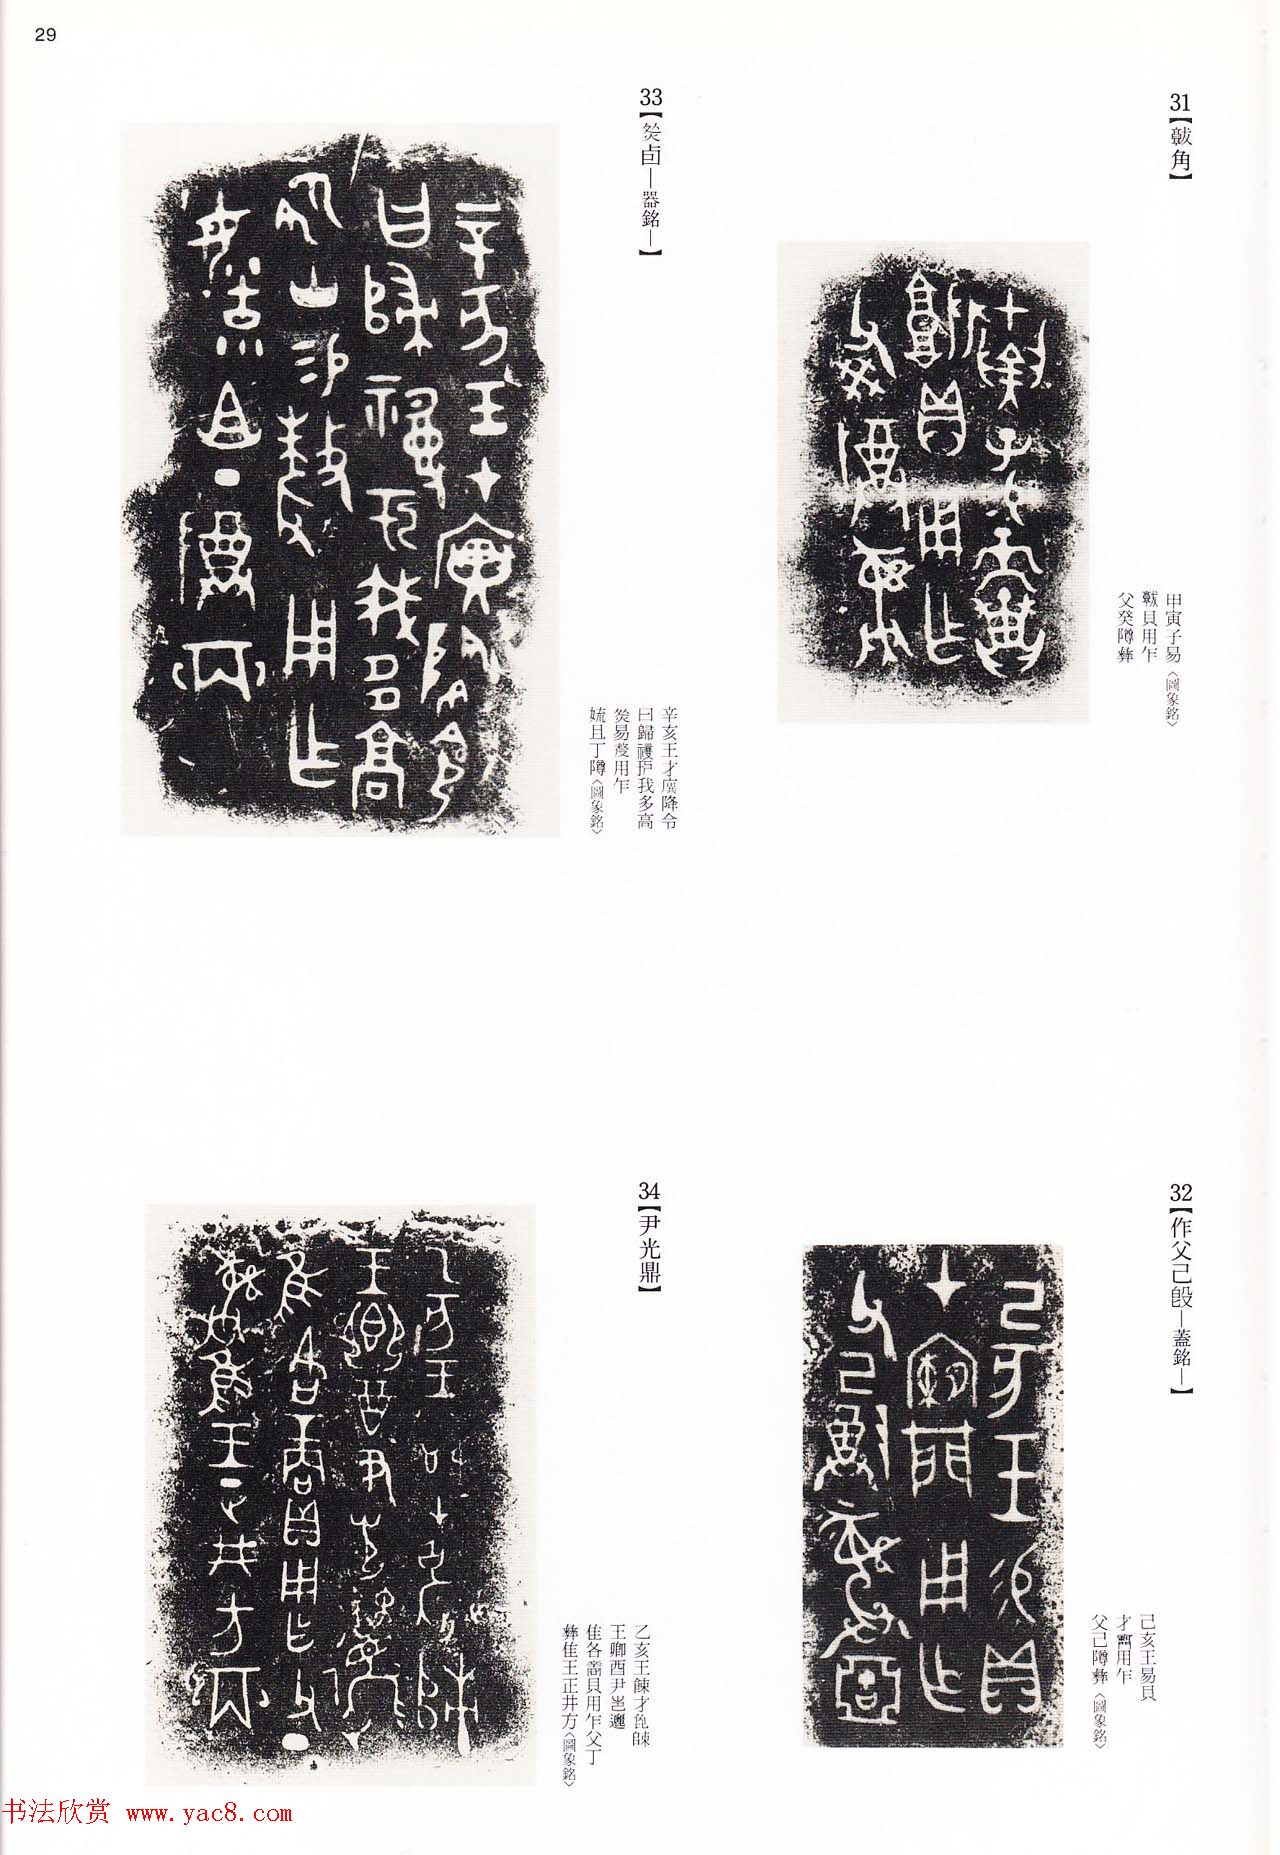 29
31【𢽎角】
甲寅子易〈圖象銘〉
貝用乍
父癸隮彝
32【作父己𣪘—蓋銘—】
己亥王易貝
才用乍
父己隮彝〈圖象銘〉
33【卣—器銘—】
辛亥王才廙降令
曰歸祼我多高
易用乍
毓且丁隮〈圖象銘〉
34【尹光鼎】
乙亥王才
王鄉酉尹光邐
隹各商貝用乍父丁
彝隹王正井方〈圖象銘〉
书法欣赏 www.yac8.com